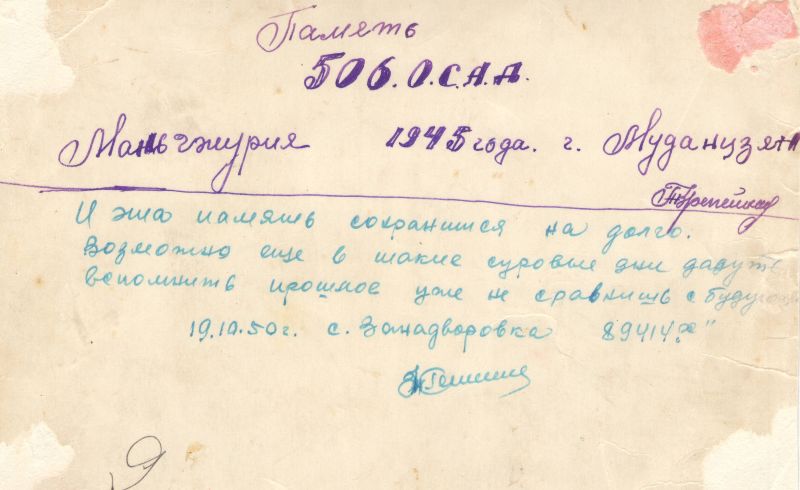 Память
506. О.С.А.Д.
Маньчжурия 1945 года. г. Муданцзян
И эта память сохранится на долго.
Возможно еще в такие суровые дни дадут
вспомнить прошлое уже не сравнишь с будущ
19.10.50г. с. Занадворовка 89414